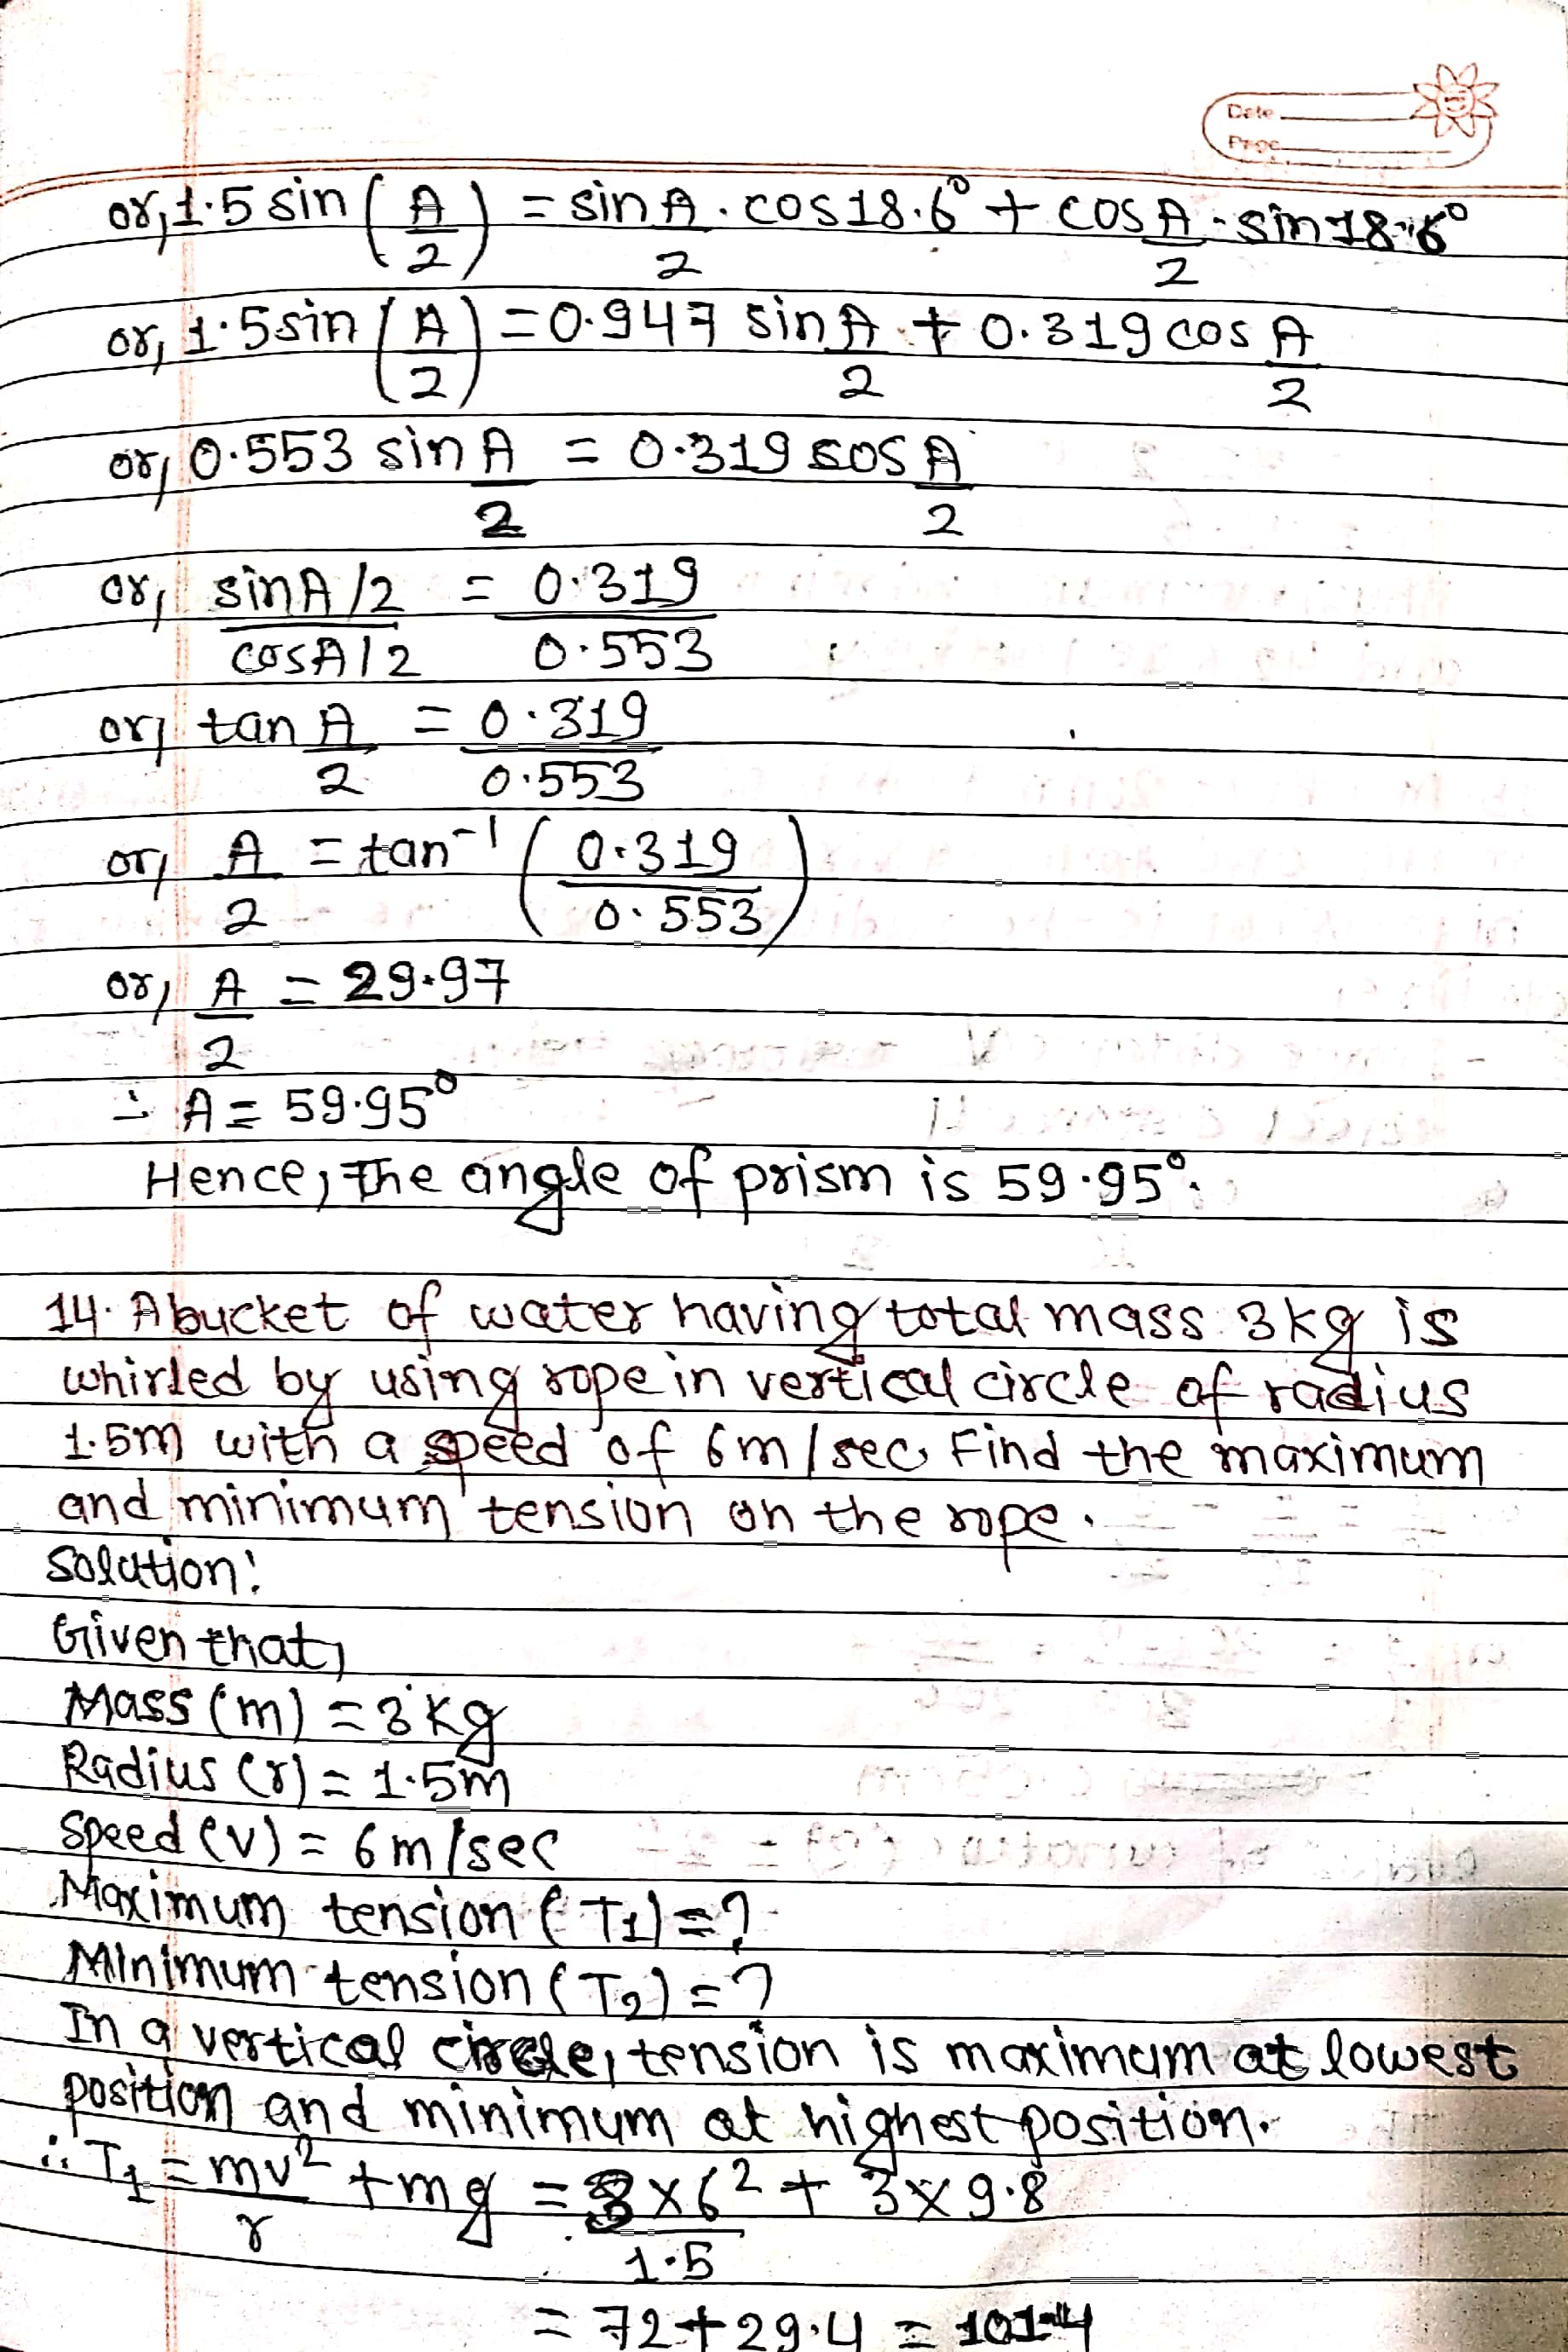 Date
Page
or, 1.5 sin (A/2) = sin A/2 . cos 18.6° + cos A/2 . sin 18.6°
or, 1.5 sin (A/2) = 0.947 sin A/2 + 0.319 cos A/2
or, 0.553 sin A/2 = 0.319 cos A/2
or, sin A/2 / cos A/2 = 0.319/0.553
or, tan A/2 = 0.319/0.553
or, A/2 = tan⁻¹ (0.319/0.553)
or, A/2 = 29.97
∴ A = 59.95°
Hence, The angle of prism is 59.95°.
14. A bucket of water having total mass 3kg is
whirled by using rope in vertical circle of radius
1.5m with a speed of 6m/sec. Find the maximum
and minimum tension on the rope.
Solution:
Given that,
Mass (m) = 3kg
Radius (r) = 1.5m
Speed (v) = 6m/sec
Maximum tension (T₁) = ?
Minimum tension (T₂) = ?
In a vertical circle, tension is maximum at lowest
position and minimum at highest position.
∴ T₁ = mv²/r + mg = 3×6²/1.5 + 3×9.8
= 72+29.4 = 101.4